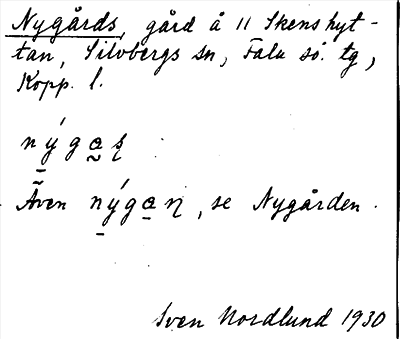 Nygårds, gård å 11 Skenshyt-
tan, Silvbergs sn, Falu sö. tg,
Kopp. l.
Även
, se Nygården.
Sven Nordlund 1930